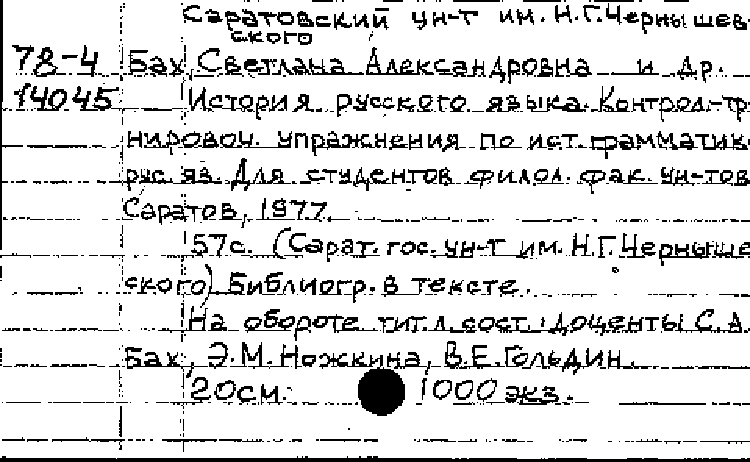 Саратовский ун-т им. Н.Г.Чернышев-
ского
78-4 Бах, Светлана Александровна и др.
14045 История русского языка. Контрол.-тр
нировоч. упражнения по ист. грамматик
рус. яз. Для студентов филол. фак. ун-тов
Саратов, 1977.
57с. (Сарат. гос. ун-т им. Н.Г. Черныше
ского) Библиогр. в тексте.
На обороте тит.л. сост.: доценты С.А.
Бах, Э.М. Ножкина, В.Е.Гольдин.
20см. 1000 экз.